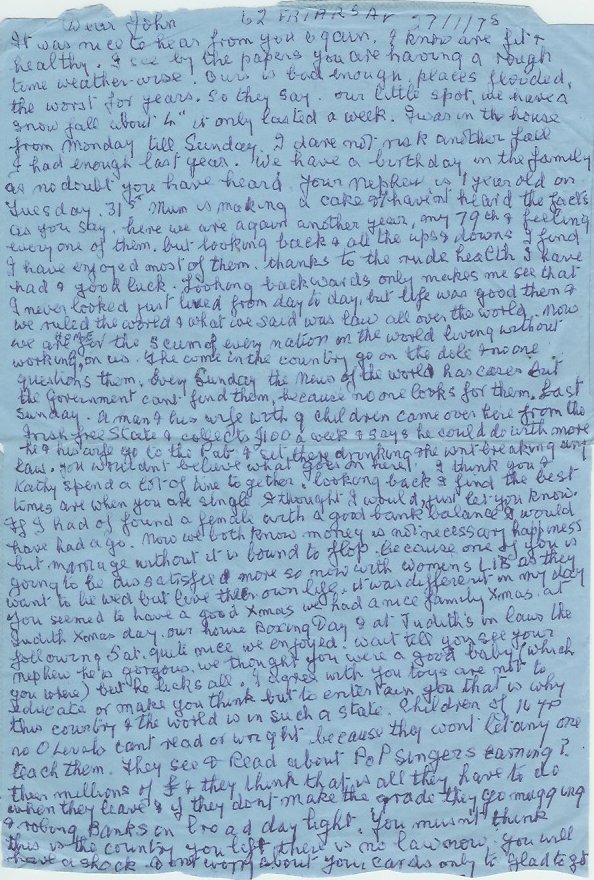 Dear John 62 FRIARS AV 27/1/78
It was nice to hear from you again. I know are fit &
healthy. I see by the papers you are having a rough
time weather-wise. Ours is bad enough, places flooded,
the worst for years. So they say. our little spot, we have a
snow fall about 4" it only lasted a week. I was in the house
from Monday till Sunday. I dare not risk another fall
I had enough last year. We have a birthday in the family
as no doubt you have heard. Your nephew is 1 year old on
Tuesday. 31st Mum is making a cake & havent heard the facts
as you say. here we are again another year, my 79th & feeling
everyone of them. but looking back & all the ups & downs I find
I have enjoyed most of them. thanks to the rude health I have
had & good luck. Looking backwards only makes me see that
I never looked just lived from day to day, but life was good then &
we ruled the world & what we said was law all over the world. Now
we are the scum of every nation in the world living without
working, on us. The come in the country go on the dole & no one
questions them, Every Sunday the News of the World has cases but
the Government cant find them, because no one looks for them. Last
Sunday. A man & his wife with 9 children came over here from the
Irish free State & collects £100 a week & says he could do with more
he & his wife go to the Pub & set there drinking & he isnt breaking any
laws. you wouldnt believe what goes on here. I think you &
Kathy spend a lot of time together. looking back I find the best
times are when you are single I thought I would just let you know.
If I had of found a female with a good bank balance I would
have had a go. Now we both know money is not necessary happiness
but marriage without it is bound to flop. because one of you is
going to be dissatisfied more so now with womens LIB as they
want to be wed but live their own life. it was different in my day
You seemed to have a good Xmas we had a nice family Xmas. at
Judith Xmas day. our house Boxing Day & at Judith's in laws the
following Sat. quite nice we enjoyed. wait tell you see your
nephew he is gorgous. we thought you were a good baby (which
you were) but he licks all. I agree with you toys are not to
educate or make you think but to entertain you that is why
this country & the world is in such a state. Children of 16 up
no O Levels cant read or wright because they wont let any one
teach them. They see & Read about PoP singers earning?
their millions of £ & they think that is all they have to do
when they leave & if they dont make the grade they go mugging
& robing Banks in broad day light. You musn't think
this is the country you left there is no law now. you will
have a shock. Do not worry about your cards only to glad to get